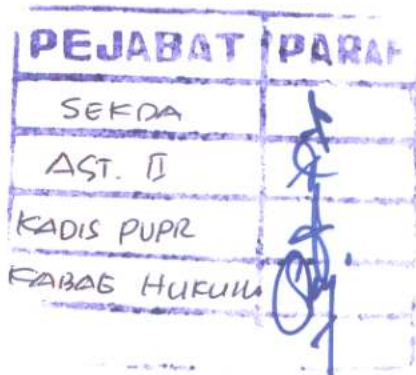 PEJABAT PARAF
SEKDA
AST. II
KADIS PUPR
KABAG HUKUM